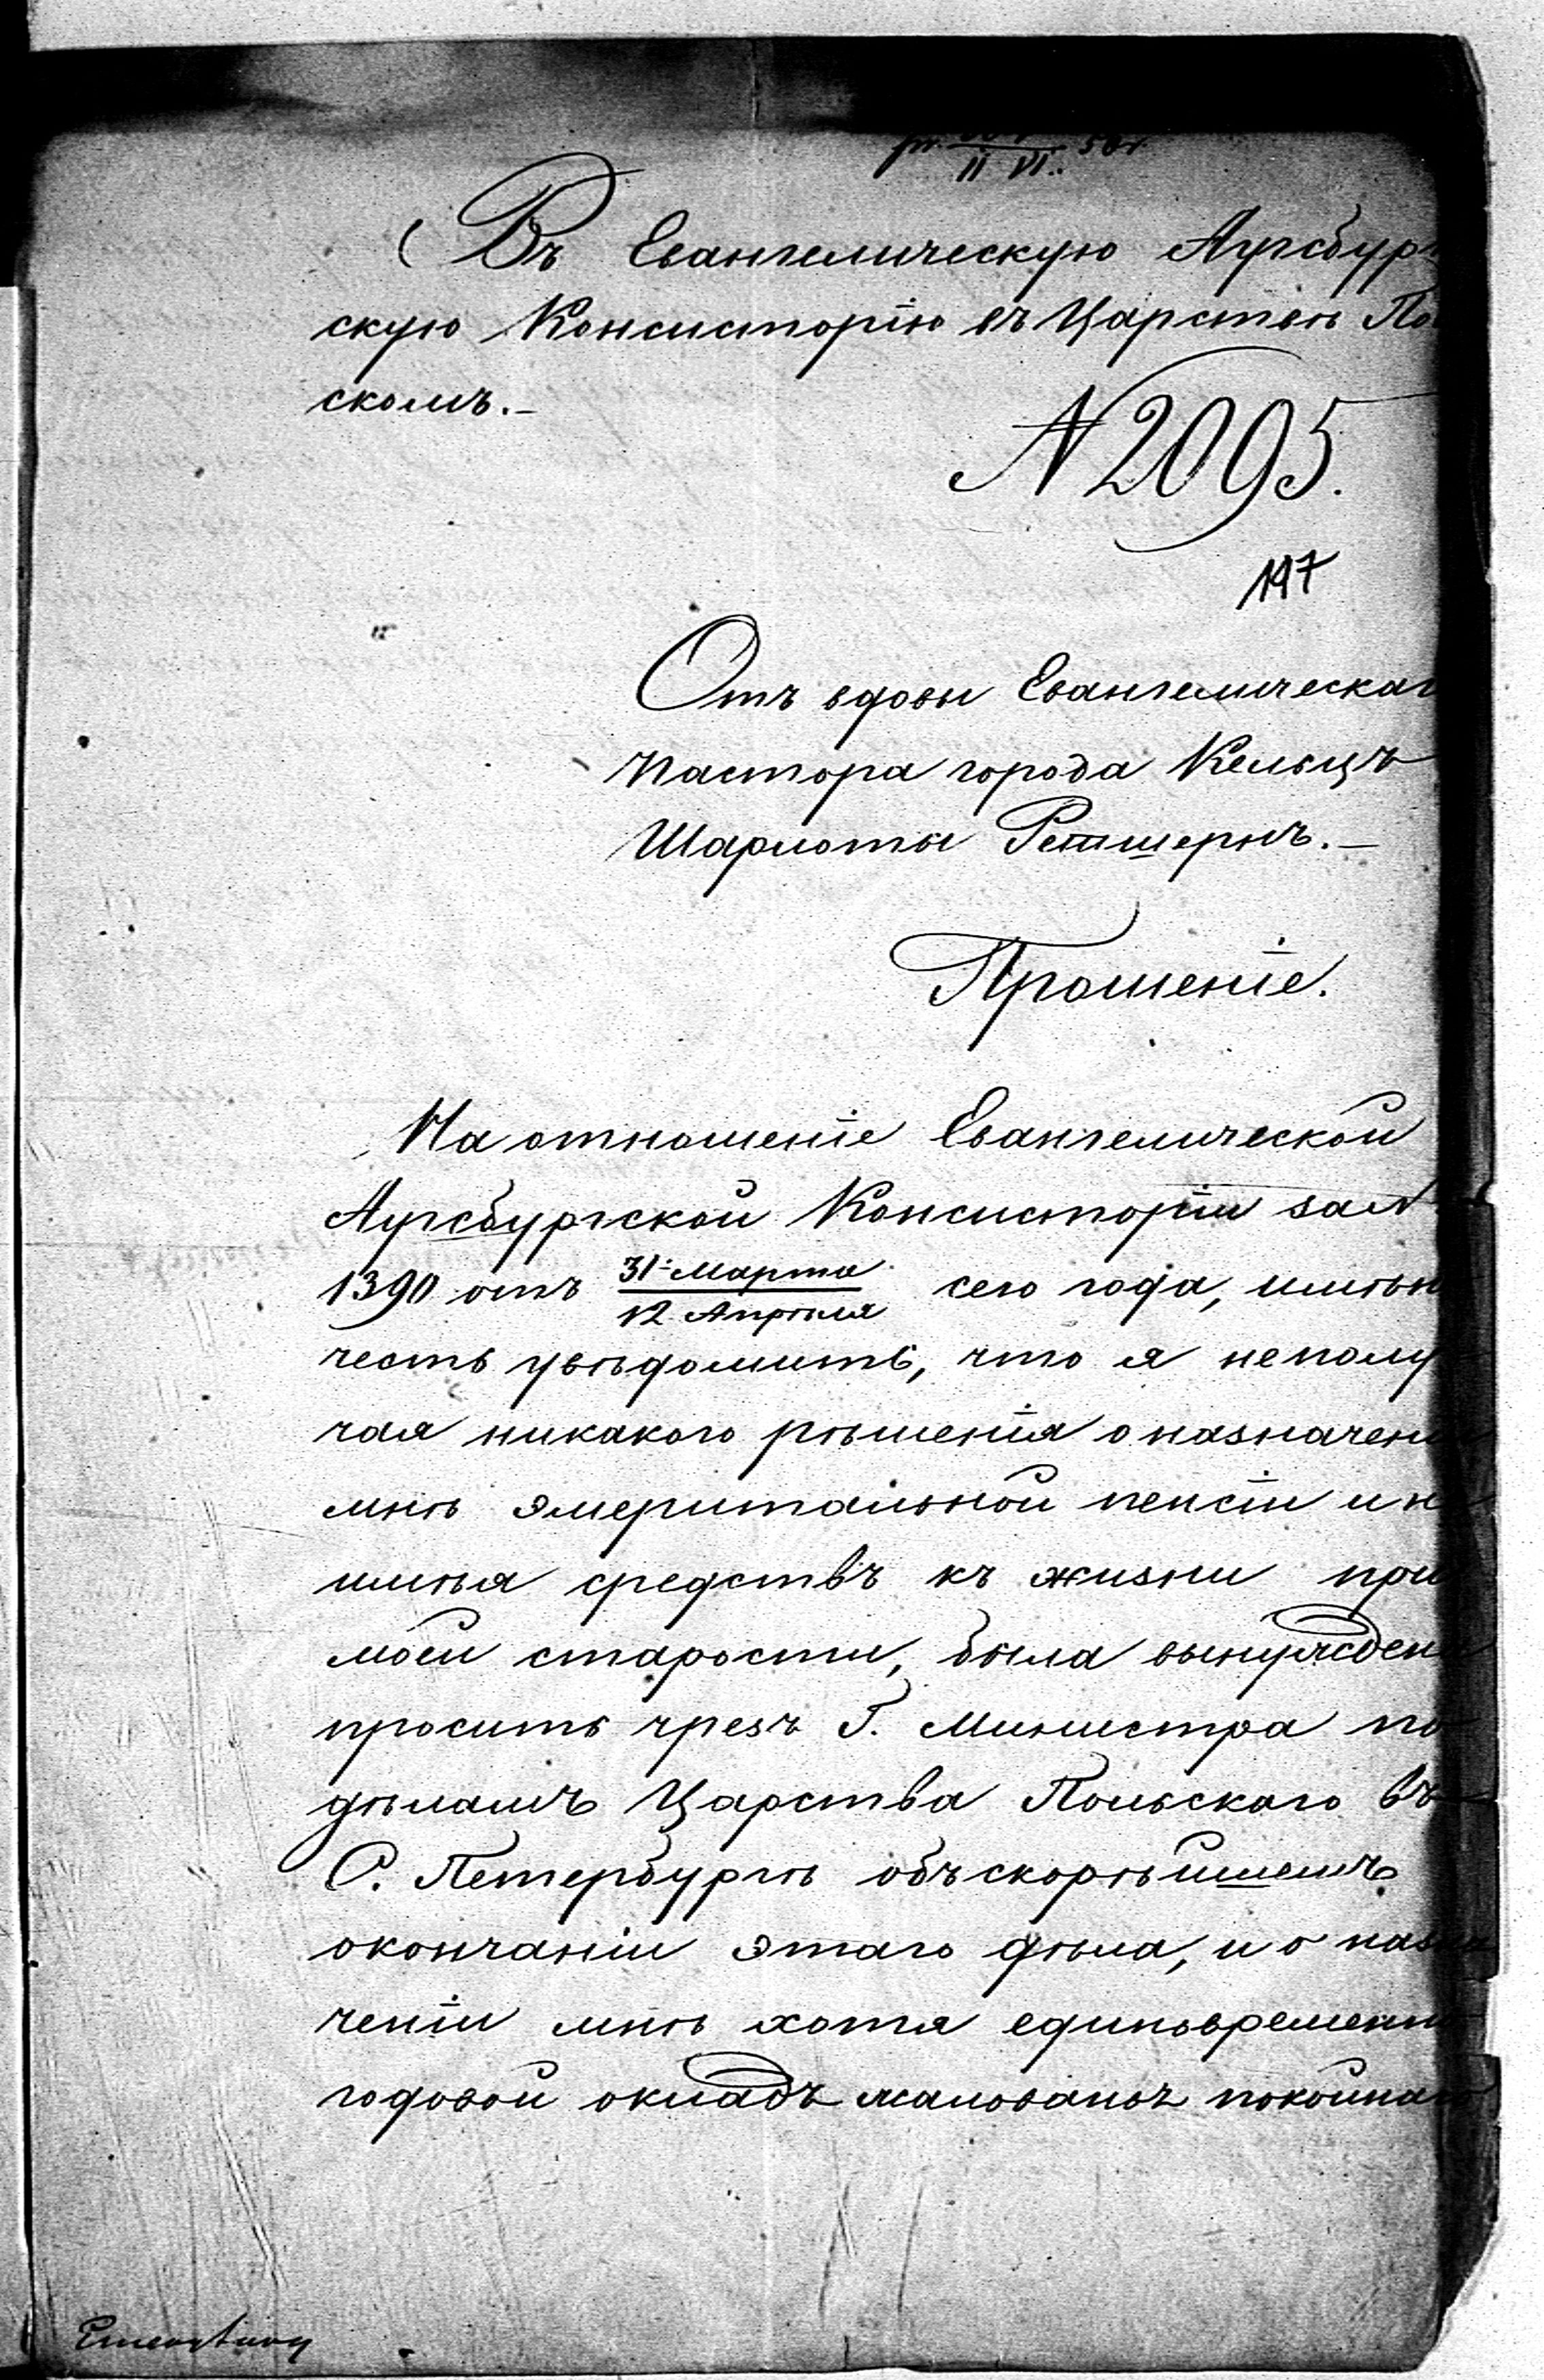 II VI..
Въ Евангелическую Аугсбург
скую Консисторію въ Царствѣ По
скомъ.-
N 2095.
197
Отъ вдовы Евангелическаг
Пастора города Кельцъ
Шарлоты Ретшеръ.-
Прошеніе.
На отношеніе Евангелической
Аугсбургской Консисторіи за N
1390 отъ 31 Марта / 12 Апрѣля сего года, имѣю
честь увѣдомить, что я неполу
чая никакого рѣшенія о назначени
мнѣ эмеритальной пенсіи и н
имѣя средствъ къ жизни при
моей старости, была вынуждена
просить чрезъ Г. Министра по
дѣламъ Царства Польскаго въ
С. Петербургѣ объ скорѣйшемъ
окончаніи этаго дѣла, и о назна
ченіи мнѣ хотя единовременн
годовой окладъ жалованья покойнаго